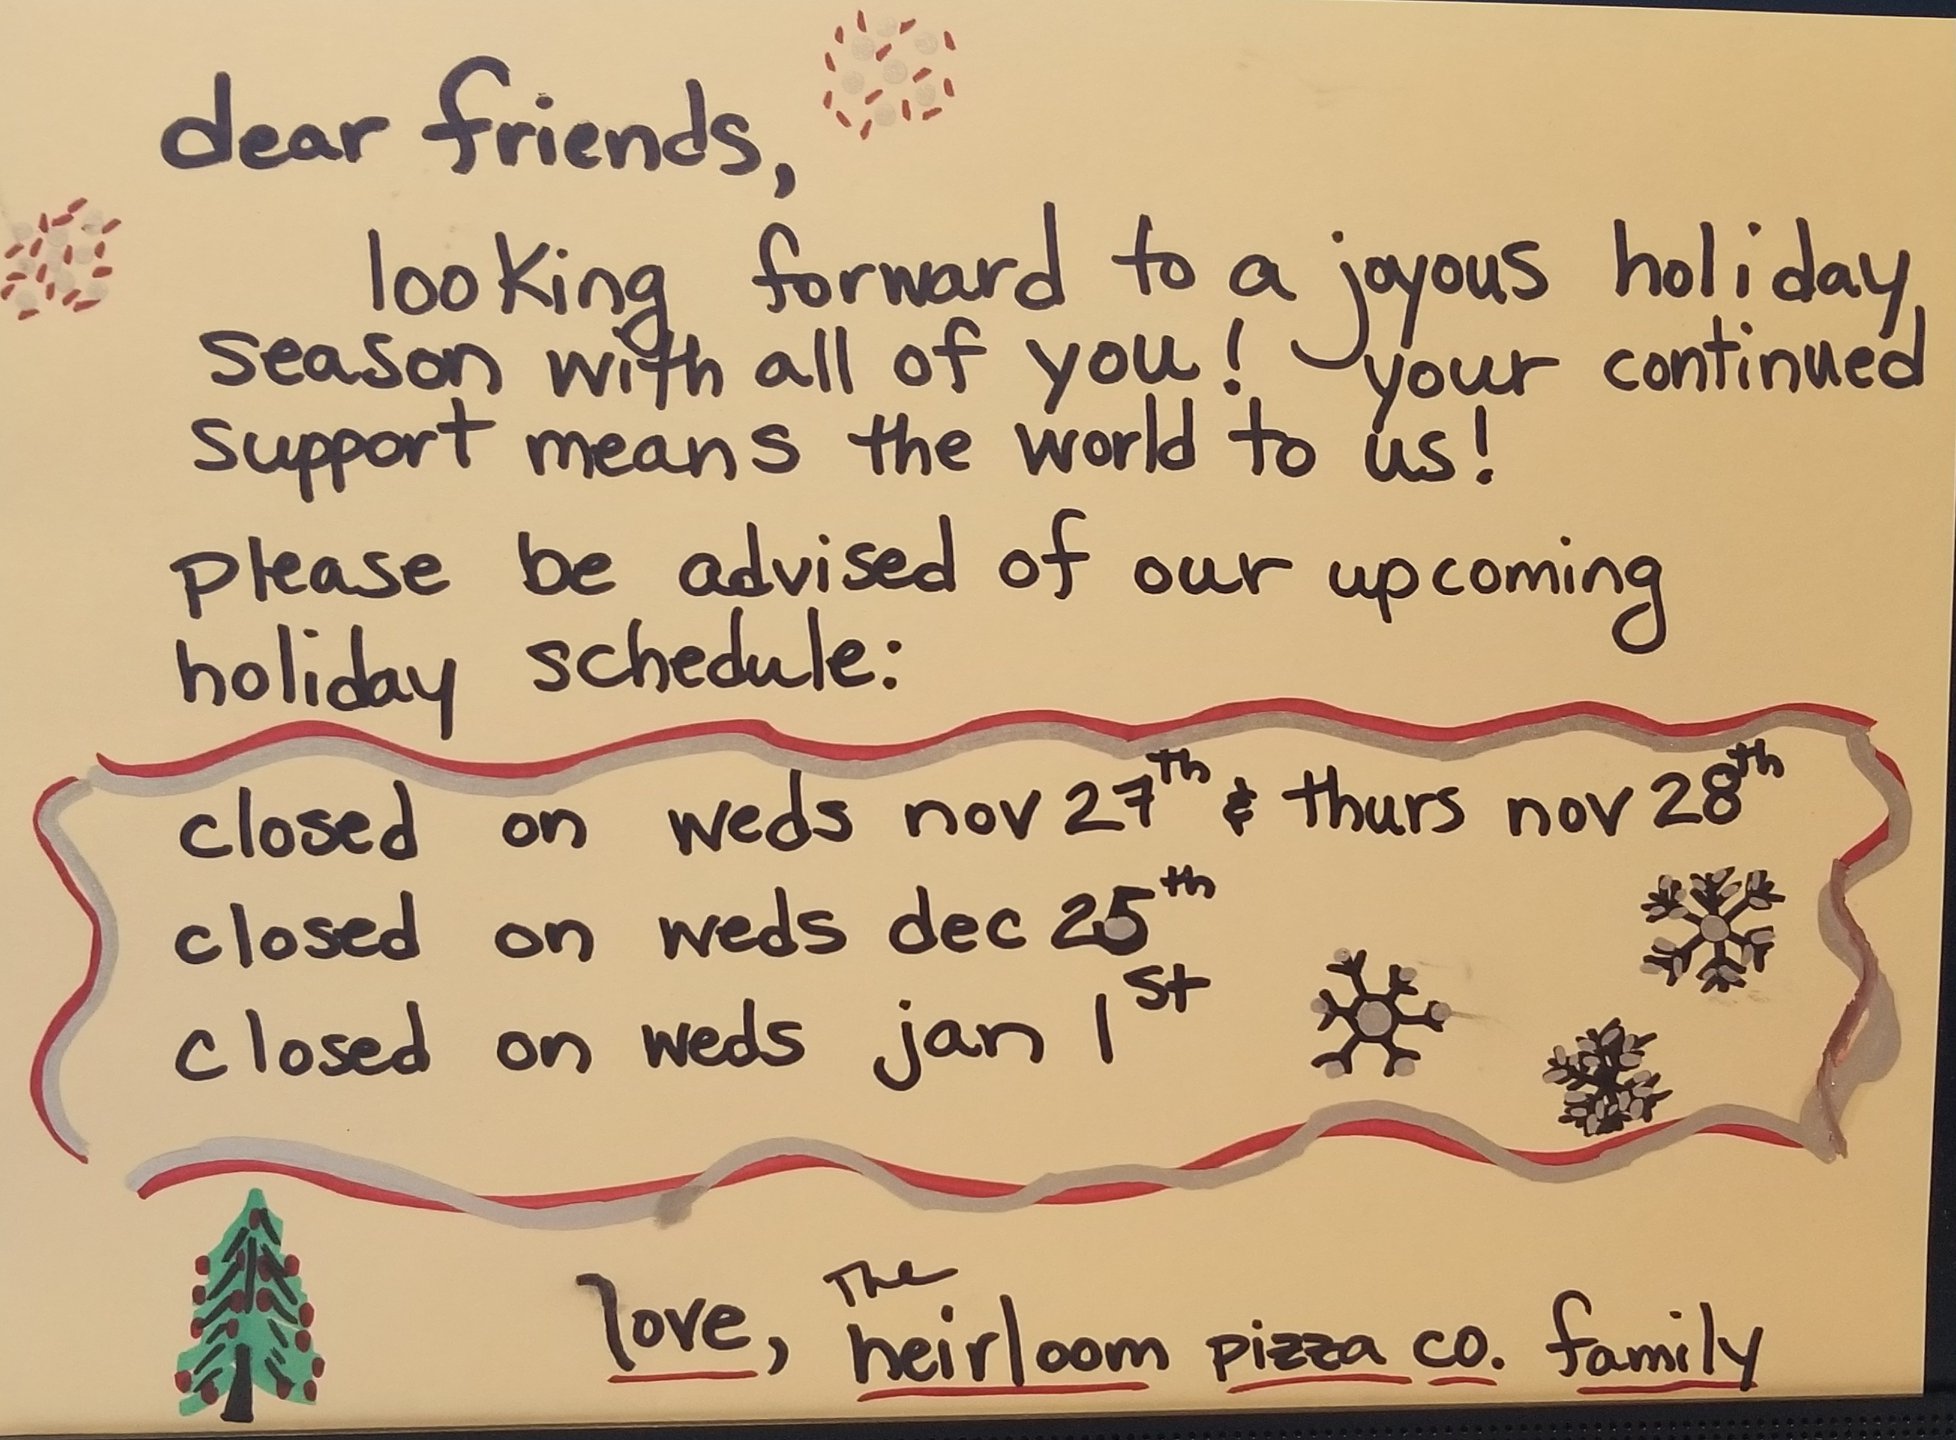 dear friends,
looking forward to a joyous holiday
season with all of you! your continued
support means the world to us!
please be advised of our upcoming
holiday schedule:
closed on weds nov 27th & thurs nov 28th
closed on weds dec 25th
closed on weds jan 1st
love, The heirloom pizza co. family